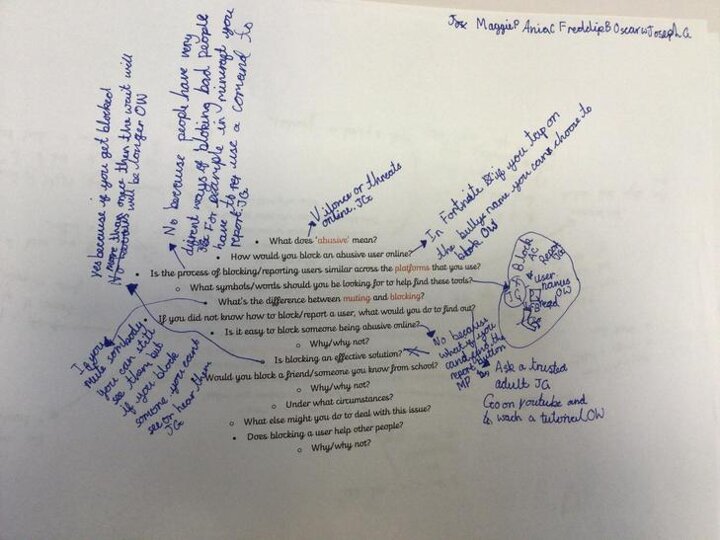 Joe MaggieP AniaC FreddieB OscarW Joseph.G
yes because if you get blocked
more than once then the wait will
will be longer OW
No because people have very
different ways of bloking bad people
For example in minicraft you
have to use a comand to
report. JG
Vilonce or threats
online. JG
In Fortniate if you tap on
the bullys name you can choose to
block OW
What does 'abusive' mean?
How would you block an abusive user online?
Is the process of blocking/reporting users similar across the platforms that you use?
What symbols/words should you be looking for to help find these tools?
What's the difference between muting and blocking?
If you did not know how to block/report a user, what would you do to find out?
Is it easy to block someone being abusive online?
Why/why not?
Is blocking an effective solution?
Would you block a friend/someone you know from school?
Why/why not?
Under what circumstances?
What else might you do to deal with this issue?
Does blocking a user help other people?
Why/why not?
Block
AC
Report
user
OW
If you
mute somebody
you can still
see them but
if you block
someone you cant
see or hear them
JG
No because
what if you
cand find the
report button
MP
Ask a trusted
adult JG
Go on youtube and
wach a tutorial OW